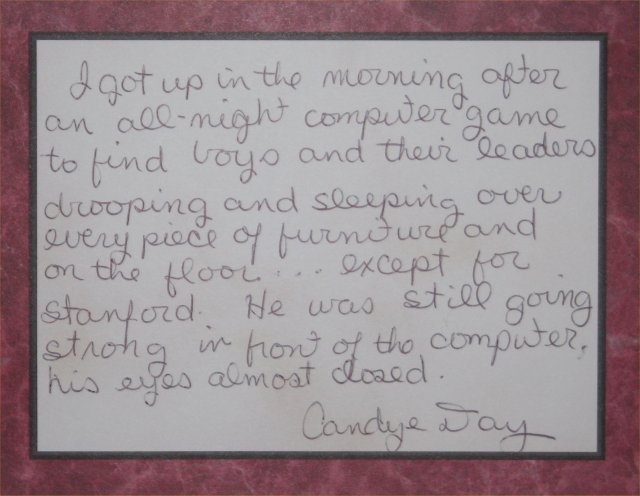 I got up in the morning after
an all-night computer game
to find boys and their leaders
drooping and sleeping over
every piece of furniture and
on the floor... except for
Stanford. He was still going
strong in front of the computer,
his eyes almost closed.
Candye Day